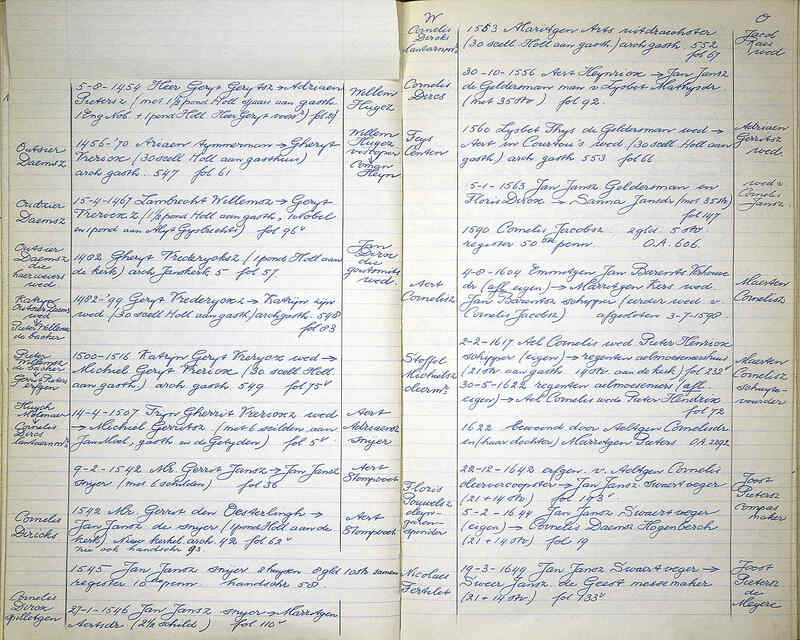 5-8-1454 Heer Geryt Gerytsz → Adriaen
Pietersz (met 1/2 pond Holl
1 Eng Nob + 1 pond Holl Heer Geryt voors) fol 29
Willem
Hugez
Outsier
Daemsz
1456-'70 Ariaen Aymmerman → Gheryt
Vreriox (30 scell Holl aan gasthuis)
arch gasth. 547 fol 61
Willem
Hugez
Coman
Heyn
Outzier
Daemsz
15-4-1467 Lambrecht Willemsz → Geryt
Vreriocxz (1/2 pond Holl aan gasth,
en 1 pond aan Alyt Gysbrechts) fol 96
Outsier
Daemsz
die
wed.
1482 Gheryt Vrederycksz (1 pond Holl aan
de kerk) arch Janskerk 5 fol 57
Jan
Dirox
die
wed.
Katryn
wed
Pieter Willemsz
de backer
1482-'99 Geryt Vrederyoxz → Katrijn zijn
wed (30 scell Holl aan gasth) arch gasth. 548
fol 83
Pieter
Willemsz
de backer
Gerrit Pieters
erfgen
1500-1516 Katryn Geryt Vreryox wed →
Michiel Geryt Vreriox (30 scell Holl
aan gasth) arch gasth 549 fol 75
Huych
Molenaer
Cornelis
Dirox
lantaernm
14-4-1507 Fryn Gherrit Vreriocxz wed
→ Michiel Gerritsz (met 6 scilden aan
Jan Moel, gasth en de Getyden) fol 5
Aert
Adriaensz
snijer
9-2-1542 Mr. Gerrit Jansz → Jan Jansz
snijer (met 6 schilden) fol 36
Aert
Stompvoet
Cornelis
Diricks
1542 Mr. Gerrit den Oesterlingh →
Jan Jansz de snijer (1 pond Holl aan de
kerk) Nieuwe kerkel arch 42 fol 62
zie ook handschr 93.
Aert
Stompvoet
1545 Jan Jansz snijer 2 huysen 8 gld 10 st samen
register 10de penn. handschr 58.
Cornelis
Dirox
spilletgen
27-1-1546 Jan Jansz snyer → Marritgen
Aertsdr (2 1/2 schild) fol 110
W
O
Cornelis
Dircks
lantaernm
1553 Maritgen Arts uitdraechster
(30 scell Holl aan gasth) arch gasth 552
fol 67
Jacob
Kaes
wed
Cornelis
Dircs
30-10-1556 Aert Heyriox → Jan Jansz
de Geldersman man v Lysbet Mathysdr
(met 35 str) fol 92.
Feys
Centen
1560 Lysbet Thys de Geldersman wed →
Aert in Courtou's wed (30 scell Holl aan
gasth) arch gasth 553 fol 66
Adriaen
Gerritsz
wed.
5-1-1563 Jan Jansz Geldersman en
Floris Dirox → Sanna Jansdr (met 35 str)
fol 147
wed v
Cornelis
Jansz.
1590 Cornelis Jacobsz. 2 gld. 5 str.
register 50ste penn. O.A. 606.
Aert
Cornelisz
4-8-1604 Emmetgen Jan Barents
dr (afl. eigen) → Marritgen Kers wed.
Jan Barentsz schipper (eerder wed. v.
Cornelis Jacobsz) afgesloten 3-7-1598
Maerten
Cornelisz
Stoffel
Michielsz
cleerm
2-2-1617 Ael Cornelis wed Pieter Henriox
schipper (eigen) → regenten aelmoeseniershuis
(21 str aan gasth. 14 str. aan de kerk) fol 232
30-5-1622 regenten aelmoeseniers (afl.
eigen) → Ael Cornelis wed Pieter Hendrix
fol 72
Maerten
Cornelisz
schuyte-
voerder
1622 bewoond door Aeltgen Cornelisdr
en (haar dochter) Marretgen Pieters O.A. 2292
Floris
Pouwelsz
oleyn-
garen-
22-12-1642 erfgen. v. Aeltgen Cornelis
→ Jan Jansz Swaertveger
(21 + 14 str) fol 193
Joost
Pietersz
compas
maker
5-2-1644 Jan Jansz Swaertveger
(eigen) → Cornelis Daemsz Hogenberch
(21 + 14 str) fol 19
Nicolaes
Ferlet
19-3-1649 Jan Jansz Swaertveger →
Sweer Jansz de Geest messemaker
(21 + 14 str) fol 133
Joost
Pietersz
de
Meyere